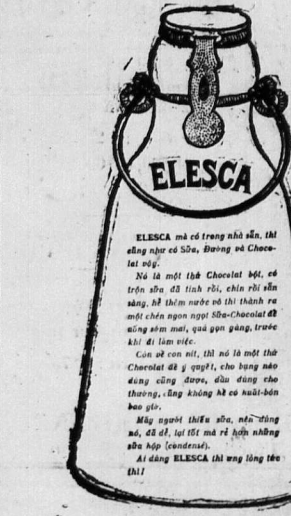 ELESCA
ELESCA mà có trong nhà sẵn, thì
cũng như có Sữa, Đường và Choco-
lat vậy.
Nó là một thứ Chocolat bột, có
trộn sữa đã tinh rồi, chín rồi sẵn
sàng, hễ thêm nước vô thì thành ra
một chén ngon ngọt Sữa-Chocolat để
uống sớm mai, quá gọn gàng, trước
khi đi làm việc.
Còn về con nít, thì nó là một thứ
Chocolat để y quyết, cho bụng nào
dùng cũng được, dầu dùng cho
thường, cũng không hề có nuất-bón
bao giờ.
Mấy người thiếu sữa, nên dùng
nó, đã dễ, lại tốt mà rẻ hơn những
sữa hộp (condensé).
Ai dùng ELESCA thì ưng lòng tức
thì!